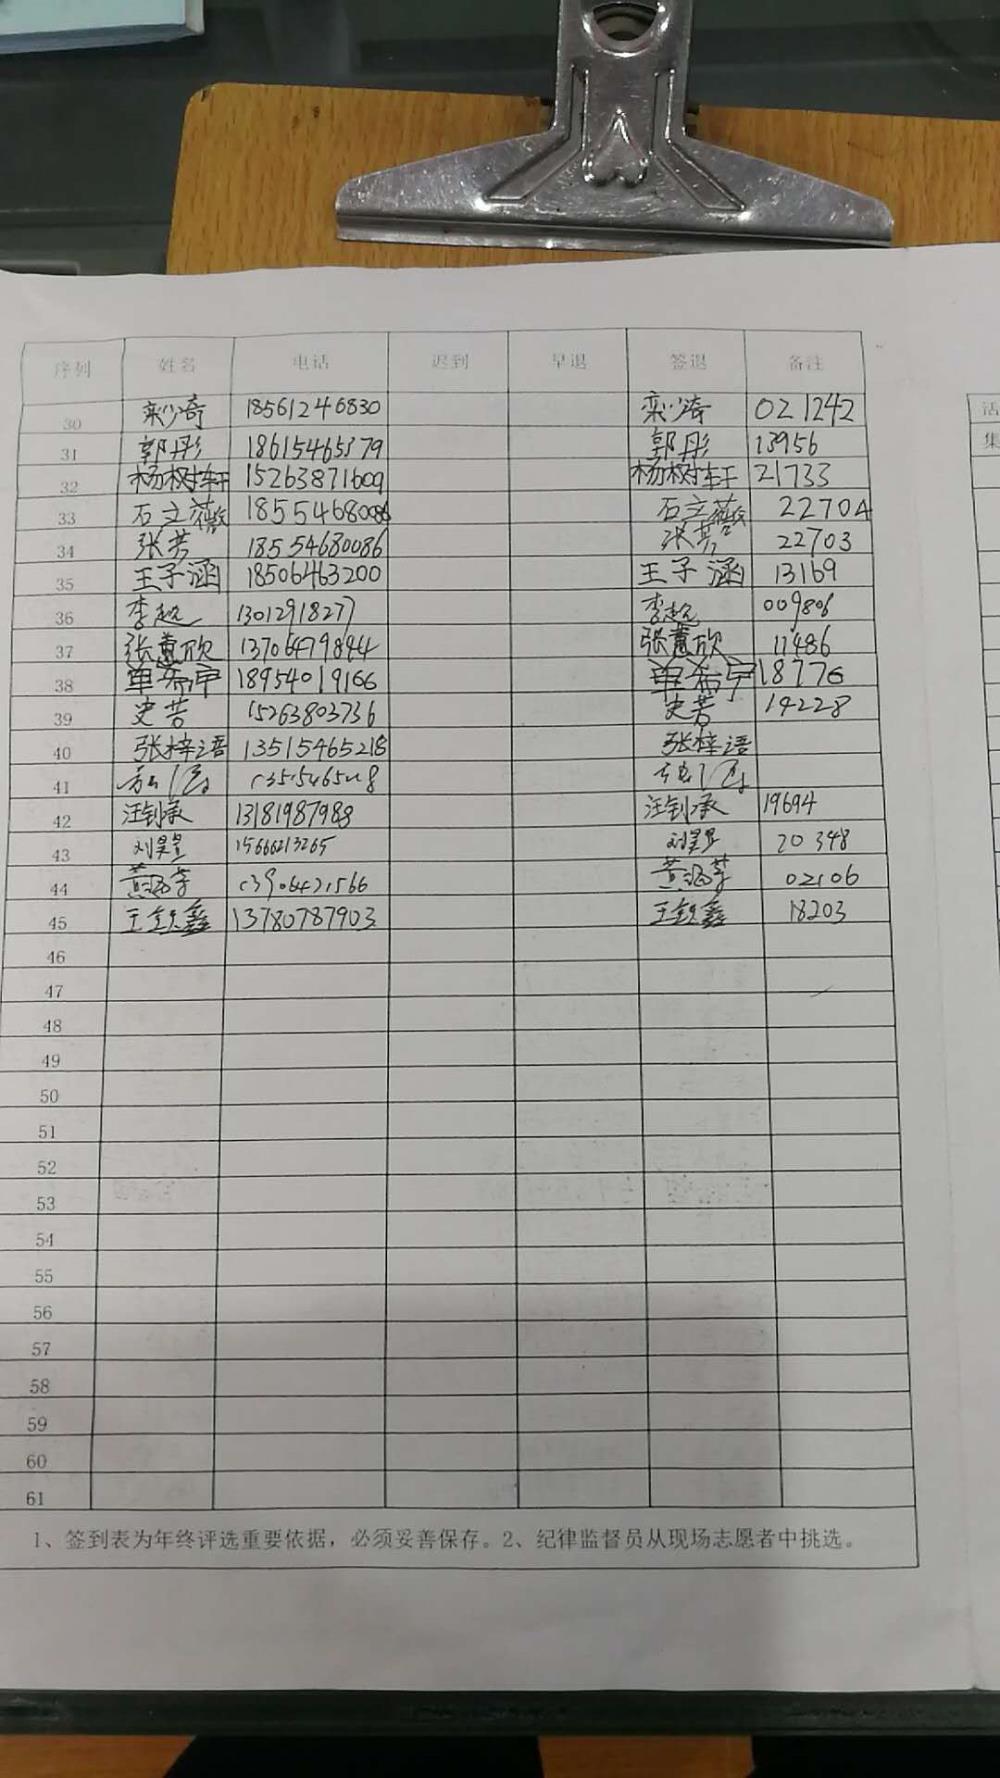 序列 姓名 电话 迟到 早退 签退 备注
30 栾少琦 18561246830 栾少琦 021242
31 郭彤 18615465379 郭彤 13956
32 杨树轩 15263871609 杨树轩 21733
33 石立薇 18554680086 石立薇 22704
34 张芳 18554680086 张芳 22703
35 王子涵 18506463200 王子涵 13169
36 李超 13012918277 李超 009806
37 张蕙欣 13706479844 张蕙欣 11486
38 单希宇 18954019166 单希宇 18776
39 史芳 15263803736 史芳 14228
40 张梓语 13515465218 张梓语
41 13515465218
42 汪钊承 13181987988 汪钊承 19694
43 刘昊昱 15666213265 刘昊昱 20348
44 黄 13906421566 黄 02106
45 王钦鑫 13780787903 王钦鑫 18203
46
47
48
49
50
51
52
53
54
55
56
57
58
59
60
61
1、签到表为年终评选重要依据，必须妥善保存。2、纪律监督员从现场志愿者中挑选。
活
集